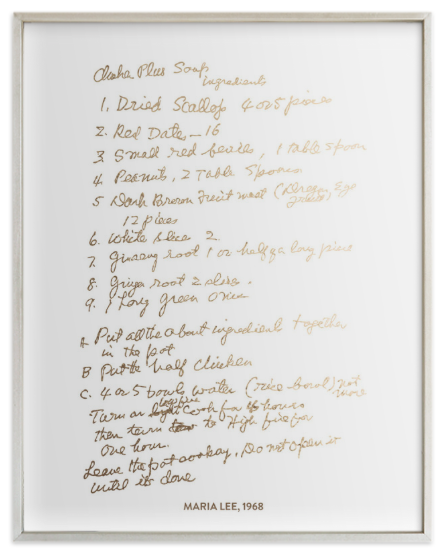 Plus Soup
ingredients
1. Dried Scallop 4 or 5 pieces
2. Red Dates - 16
3. Small red berries, 1 table spoon
4. Peanuts, 2 Table Spoons
5. Dark Brown Fruit meat (Dragon Eye
12 pieces
6. White slice 2
7. Ginseng root 1 or half a long piece
8. Ginger root 2 slice.
9. 1 Long green onion
A. Put all the about ingredient together
in the pot
B Put the half Chicken
C. 4 or 5 bowls water (rice bowl) not
more
Turn on low fire Cook for 6 hours
then turn to High fire for
One hour.
Leave the pot , Do not open it
until it's done
MARIA LEE, 1968